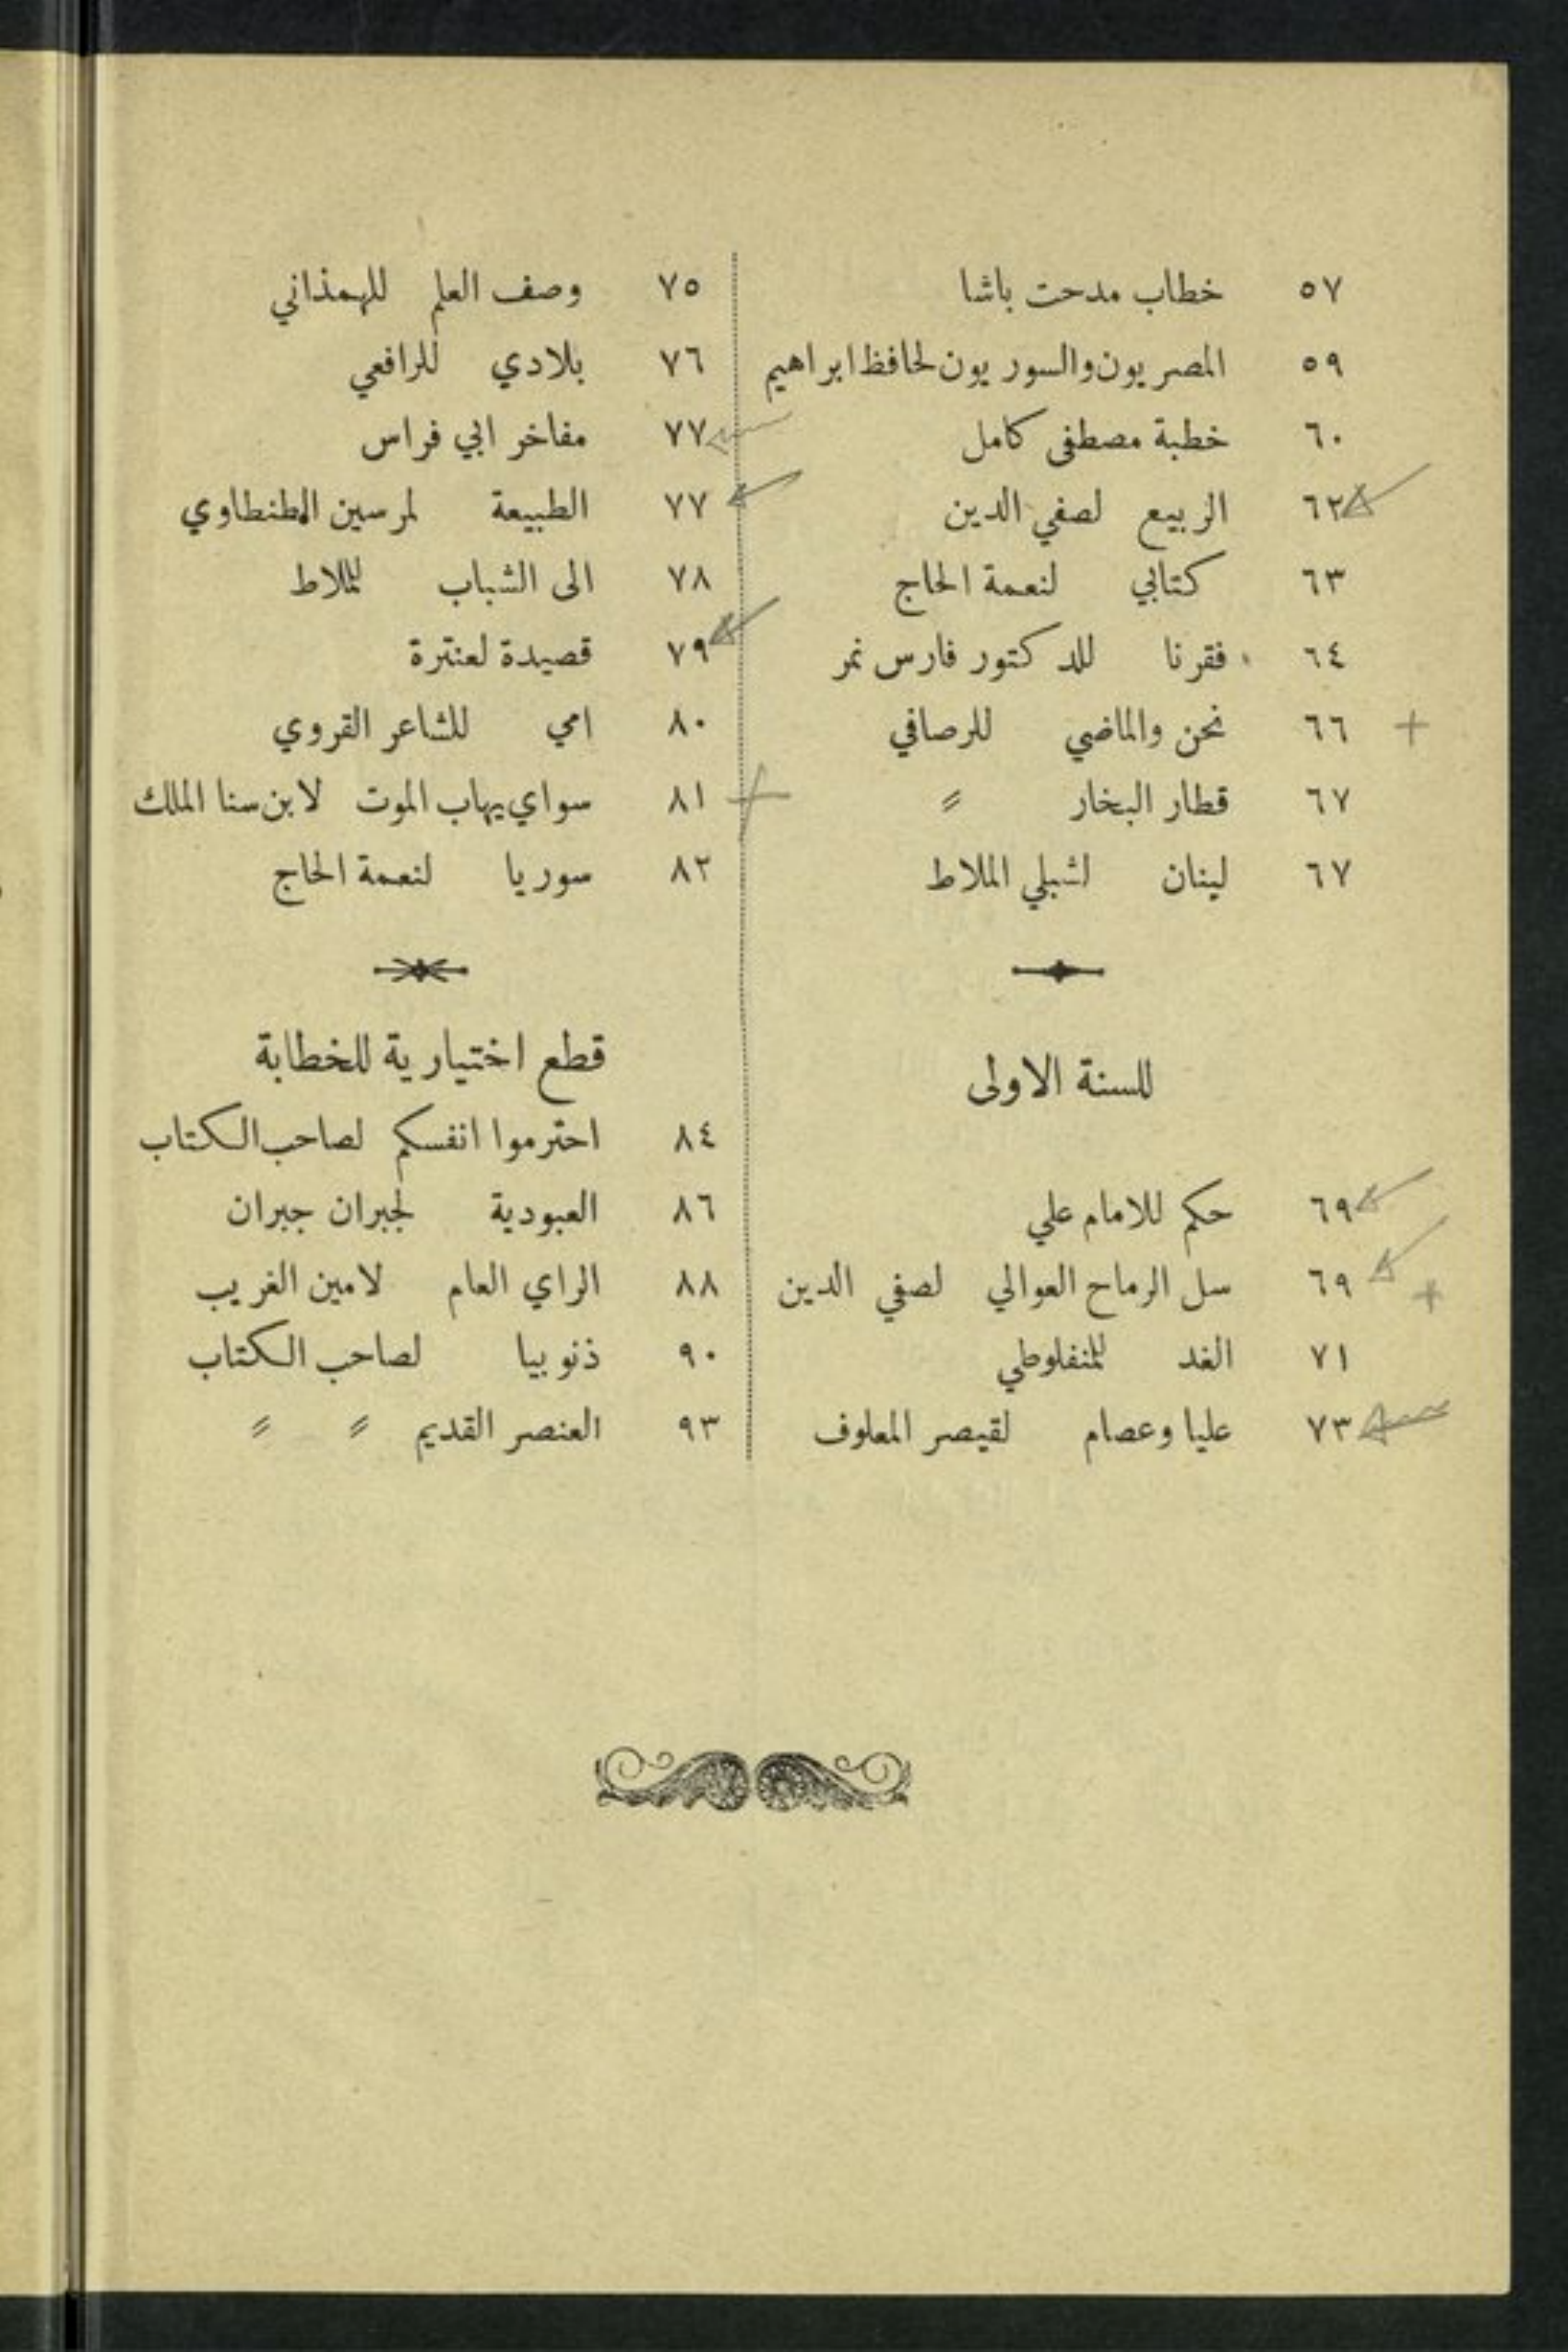 ٥٧ خطاب مدحت باشا
٥٩ المصريون والسوريون لحافظ ابراهيم
٦٠ خطبة مصطفى كامل
٦٢ الربيع لصفي الدين
٦٣ كتابي لنعمة الحاج
٦٤ فقرنا للدكتور فارس نمر
٦٦ نحن والماضي للرصافي
٦٧ قطار البخار〃
٦٧ لبنان لشبلي الملاط
للسنة الاولى
٦٩ حكم للامام علي
٦٩ سل الرماح العوالي لصفي الدين
٧١ الغد للمنفلوطي
٧٣ عليا وعصام لقيصر المعلوف
٧٥ وصف العلم للهمذاني
٧٦ بلادي للرافعي
٧٧ مفاخر ابي فراس
٧٧ الطبيعة لمرسين الطنطاوي
٧٨ الى الشباب للملاط
٧٩ قصيدة لعنترة
٨٠ امي للشاعر القروي
٨١ سواي يهاب الموت لابن سنا الملك
٨٢ سوريا لنعمة الحاج
قطع اختيارية للخطابة
٨٤ احترموا انفسكم لصاحب الكتاب
٨٦ العبودية لجبران جبران
٨٨ الراي العام لامين الغريب
٩٠ ذنوبيا لصاحب الكتاب
٩٣ العنصر القديم 〃 〃